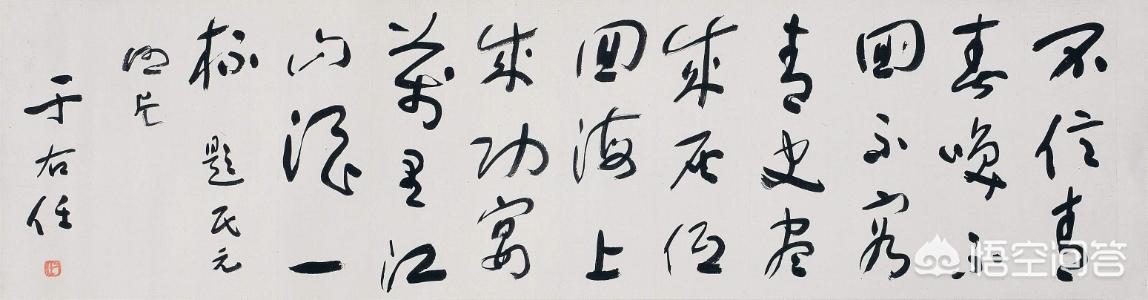 不信青
春喚不
回不容
青史盡
成灰低
回海上
成功宴
萬里江
山酒一
杯 題民元
照片
于右任
悟空问答